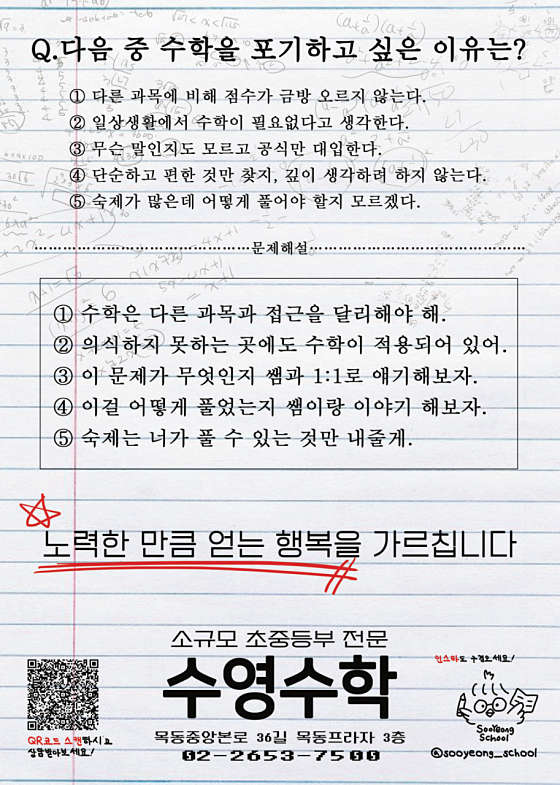 Q.다음 중 수학을 포기하고 싶은 이유는?
① 다른 과목에 비해 점수가 금방 오르지 않는다.
② 일상생활에서 수학이 필요없다고 생각한다.
③ 무슨 말인지도 모르고 공식만 대입한다.
④ 단순하고 편한 것만 찾지, 깊이 생각하려 하지 않는다.
⑤ 숙제가 많은데 어떻게 풀어야 할지 모르겠다.
문제해설
① 수학은 다른 과목과 접근을 달리해야 해.
② 의식하지 못하는 곳에도 수학이 적용되어 있어.
③ 이 문제가 무엇인지 쌤과 1:1로 얘기해보자.
④ 이걸 어떻게 풀었는지 쌤이랑 이야기 해보자.
⑤ 숙제는 너가 풀 수 있는 것만 내줄게.
노력한 만큼 얻는 행복을 가르칩니다
소규모 초중등부 전문
수영수학
목동중앙본로 36길 목동프라자 3층
02-2653-7500
QR코드 스캔하시고
상담받아보세요!
인스타도 구경오세요!
SooYeong
School
@sooyeong_school